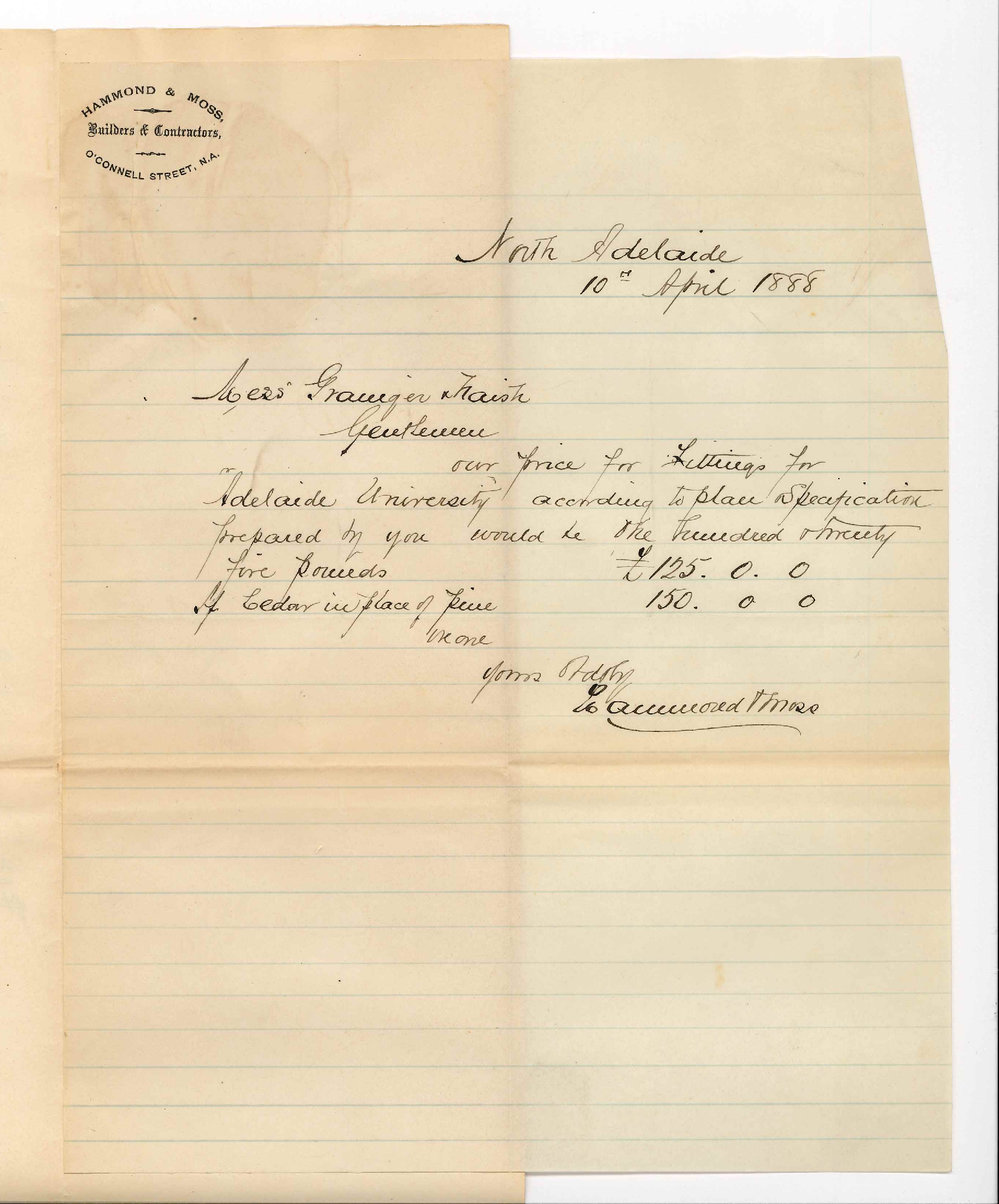 HAMMOND & MOSS,
Builders & Contractors,
O'CONNELL STREET, N.A.
North Adelaide
10th April 1888
Messrs Grainger & Naish
Gentlemen
our price for Fittings for
Adelaide University according to plan & Specification
prepared by you would be One hundred & twenty
five pounds £125. 0. 0
If Cedar in place of pine 150. 0 0
yours
Hammond & Moss